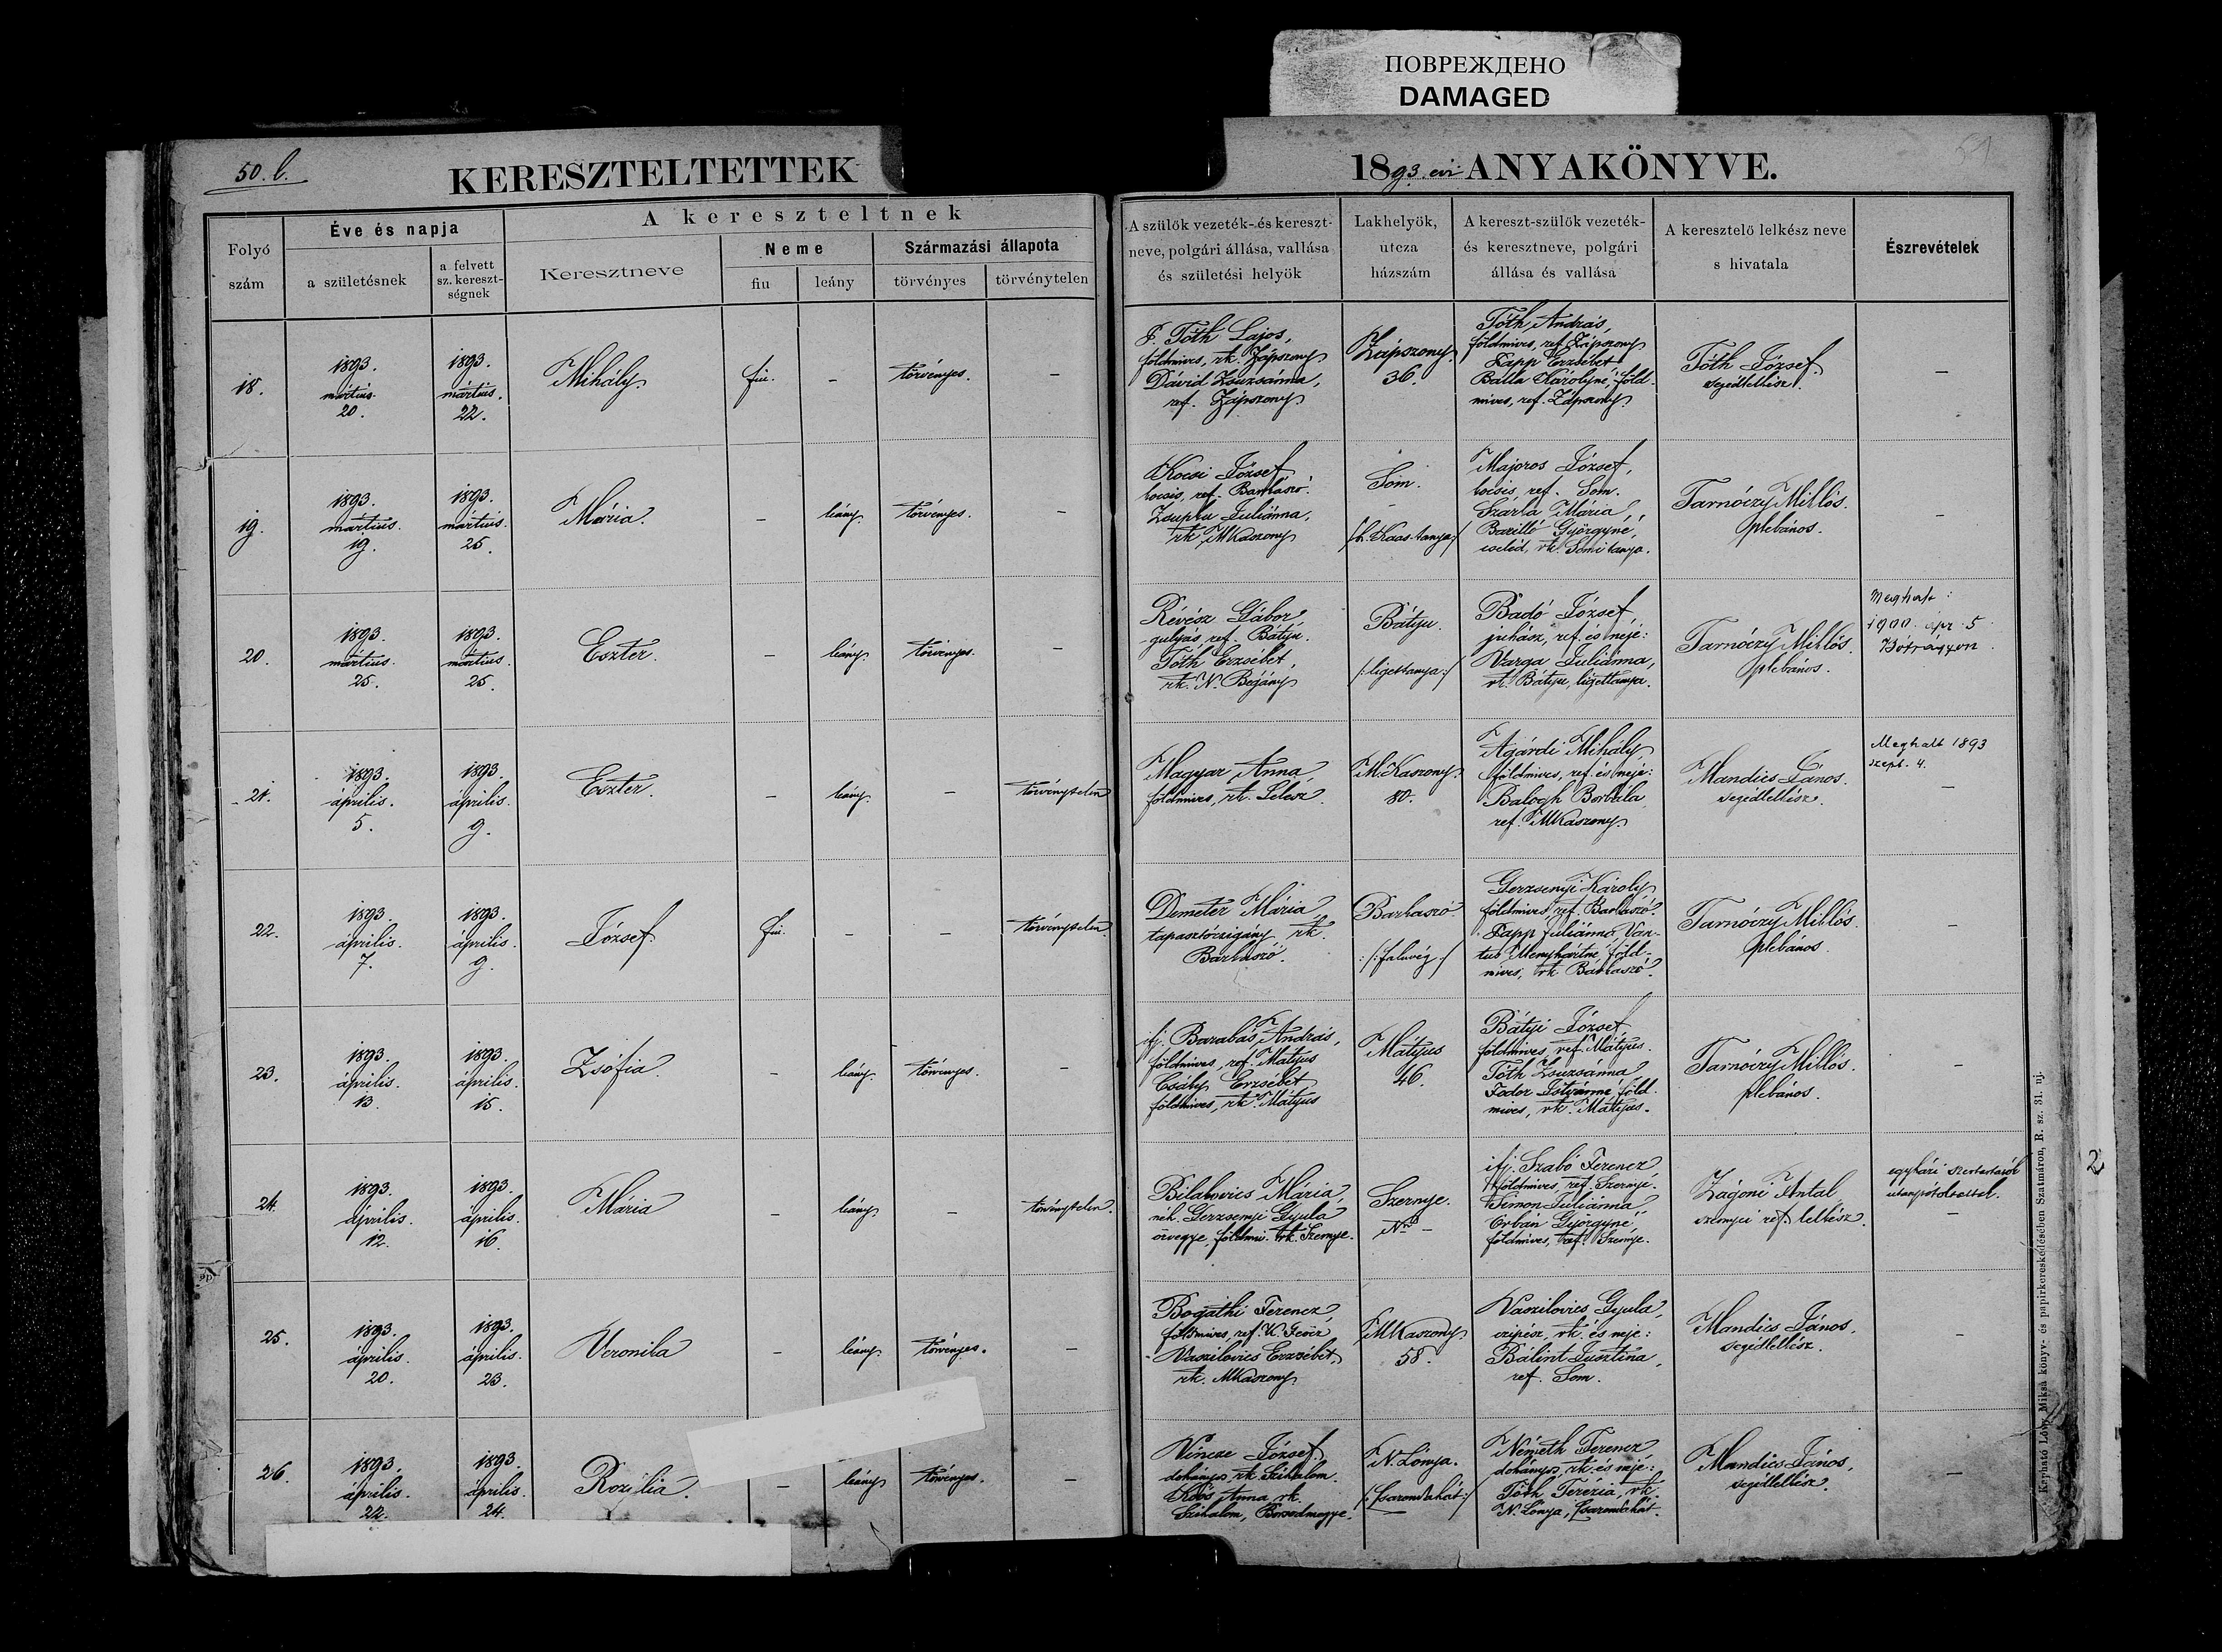 ПОВРЕЖДЕНО
DAMAGED
50. b.
KERESZTELTETTEK
1893. évi ANYAKÖNYVE.
51
Folyó szám
Éve és napja
a születésnek
a felvett sz. kereszt-ségnek
A kereszteltnek
Keresztneve
Neme
fiu
leány
Származási állapota
törvényes
törvénytelen
A szülők vezeték- és kereszt-
neve, polgári állása, vallása
és születési helyök
Lakhelyök,
utcza
házszám
A kereszt-szülők vezeték-
és keresztneve, polgári
állása és vallása
A keresztelő lelkész neve
s hivatala
Észrevételek
18.
1893.
mártius.
20.
1893.
mártius.
22.
Mihály
fiu.
-
törvényes.
-
F. Tóth Lajos,
földmives, rk. Zápszony
Dávid Zsuzsánna,
ref. Zápszony
Zápszony
36.
Tóth András,
földmives, ref. Zápszony
Papp Erzsébet
Balla Károlyné, föld-
mives, ref. Zápszony.
Tóth József.
segédlelkész.
-
19.
1893.
mártius.
19.
1893.
mártius.
25.
Mária.
-
leány.
törvényes.
-
Kocsi József
kocsis, ref. Barkaszó.
Juliánna,
rk. MKaszony
Som.
-
Majoros József,
kocsis, ref. Som.
Szarka Mária,
Györgyné,
cseléd, rk. Somi tanya.
Tarnóczy Miklós.
plebános.
-
20.
1893.
mártius.
25.
1893.
mártius.
25.
Eszter.
-
leány.
törvényes.
-
Révész Gábor,
gulyás, ref. Bátyu.
Tóth Erzsébet,
rk. N. Begány
Bátyu.
/:ligettanya:/
Badó József,
juhász, ref. és neje:
Varga Juliánna,
rk. Bátyu, ligettanya.
Tarnóczy Miklós.
plebános.
Meghalt:
1900. ápr. 5
Bótrágyon.
21.
1893.
április.
5.
1893.
április.
9.
Eszter.
-
leány.
-
törvénytelen
Magyar Anna
földmives, rk. Lelesz.
M.Kaszony.
80.
Agárdi Mihály
földmives, ref. és neje:
Balogh Borbála
ref. MKaszony.
Mandics János.
segédlelkész.
Meghalt 1893
szept. 4.
-
22.
1893.
április.
7.
1893.
április.
9.
József.
fiu.
-
-
törvénytelen.
Demeter Mária
tapasztóczigány rk.
Barkaszó.
Barkaszó.
/:faluvég:/
Gerzsenyi Károly
földmives, ref. Barkaszó.
Papp Juliánna Van-
tus Menyhártné, föld-
mives, rk. Barkaszó.
Tarnóczy Miklós.
plebános.
-
23.
1893.
április.
13.
1893.
április.
15.
Zsófia
-
leány.
törvényes.
-
ifj. Barabás András,
földmives, ref. Mátyus
Csály Erzsébet
földmives, rk. Mátyus
Mátyus
46.
Bátyi József
földmives, ref. Mátyus.
Tóth Zsuzsánna
Fodor Istvánné, föld-
mives, rk. Mátyus.
Tarnóczy Miklós.
plebános.
-
24.
1893.
április.
12.
1893.
április.
16.
Mária
-
leány.
-
törvénytelen.
Mária,
néh. Gerzsenyi Gyula
özvegye, földmiv. rk. Szernye.
Szernye.
No -
ifj. Szabó Ferencz
földmives, ref. Szernye.
Simon Juliánna,
Orbán Györgyné,
földmives, ref. Szernye.
Zágoni Antal
szernyei ref. lelkész.
egyházi szertartások
utánpótoltattak.
-
25.
1893.
április.
20.
1893.
április.
23.
Veronika
-
leány.
törvényes.
-
Bogáthi Ferencz,
földmives, ref.
Vaszilovics Erzsébet
rk. MKaszony.
MKaszony.
58.
Vaszilovics Gyula,
czipész, rk. és neje:
Bálint Jusztina,
ref. Som.
Mandics János.
segédlelkész.
-
26.
1893.
április.
22.
1893.
április.
24.
Rozália.
-
leány
törvényes.
-
Vincze József
dohányos, rk. Szihalom.
Koós Anna rk.
Szihalom, Borsodmegye.
N. Lónya.
/:Csarondahát:/
Németh Ferencz
dohányos, rk. és neje:
Tóth Terézia, rk.
N. Lónya, Csarondahát.
Mandics János,
segédlelkész.
-
Kapható Lővy Miksa könyv- és papirkereskedésében Szatmáron, R. sz. 31. nj.
2